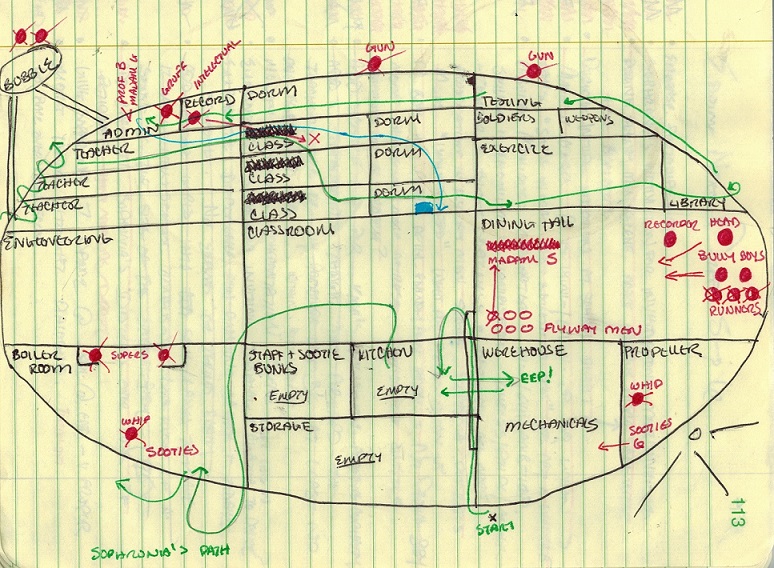 BUBBLE
PROF B
MADAM G
GRUFF
INTELLECTUAL
GUN
GUN
RECORD
DORM
TESTING
ADMIN
DORM
SOLDIERS
WEAPONS
TEACHER
CLASS
EXERCIZE
DORM
TEACHER
CLASS
DORM
TEACHER
CLASS
LIBRARY
ENGINEERING
CLASSROOM
DINING HALL
RECORDER
HEAD
MADAM S
BULLY BOYS
RUNNERS
FLYWAY MEN
BOILER
ROOM
SUPERS
STAFF + SOOTIE
BUNKS
EMPTY
KITCHEN
EMPTY
WEREHOUSE
EEP!
MECHANICALS
PROPELLER
WHIP
SOOTIES
6
WHIP
SOOTIES
STORAGE
EMPTY
X
START
SOPHRONIA'S PATH
113